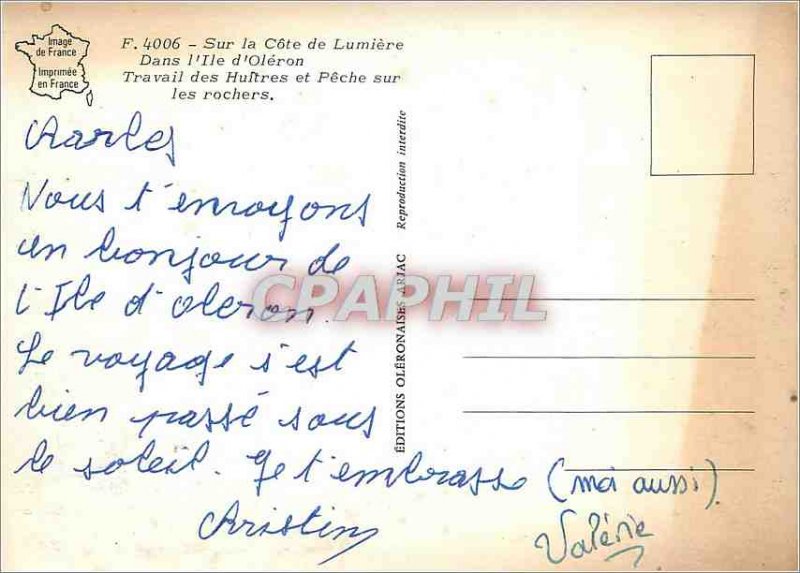 Image
de France
Imprimée
en France
F. 4006 - Sur la Côte de Lumière
Dans l'Ile d'Oléron
Travail des Huîtres et Pêche sur
les rochers.
Charles
Nous t'envoyons
un bonjour de
l'Ile d'oleron.
Le voyage s'est
bien passé sous
le soleil. Je t'embrasse (moi aussi).
Christin
Valérie
Reproduction interdite
EDITIONS OLÉRONAISES ARJAC
CPAPHIL